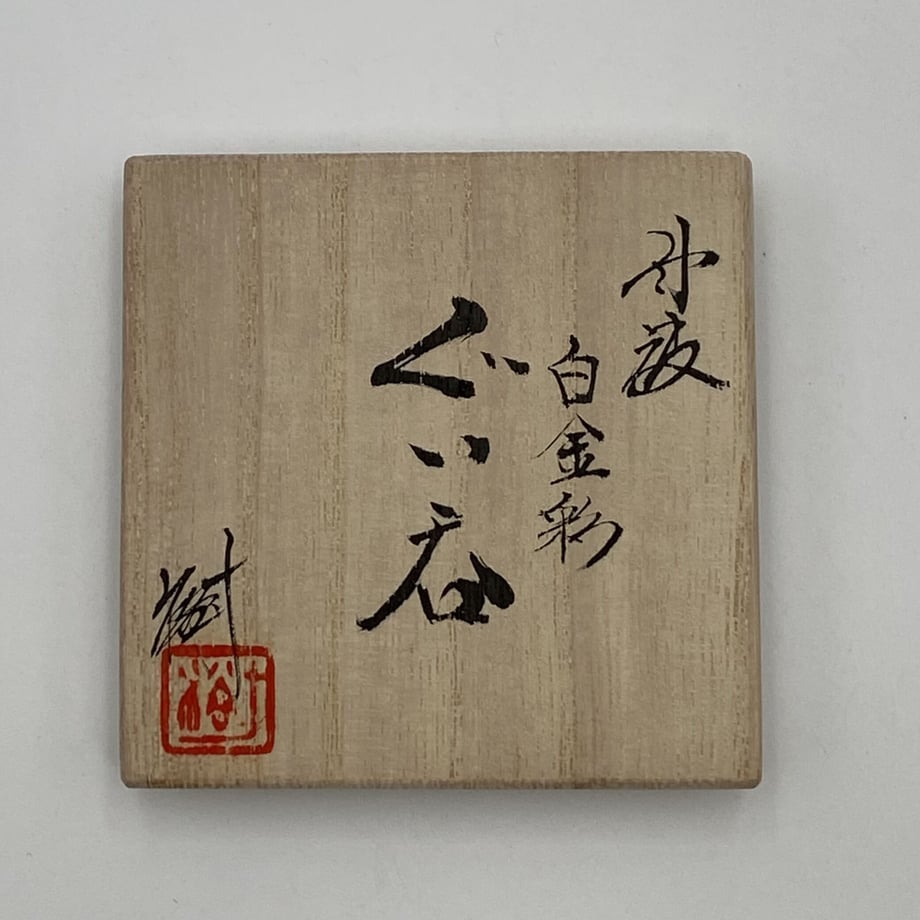 丹波
白金彩
ぐい呑
樹
樹